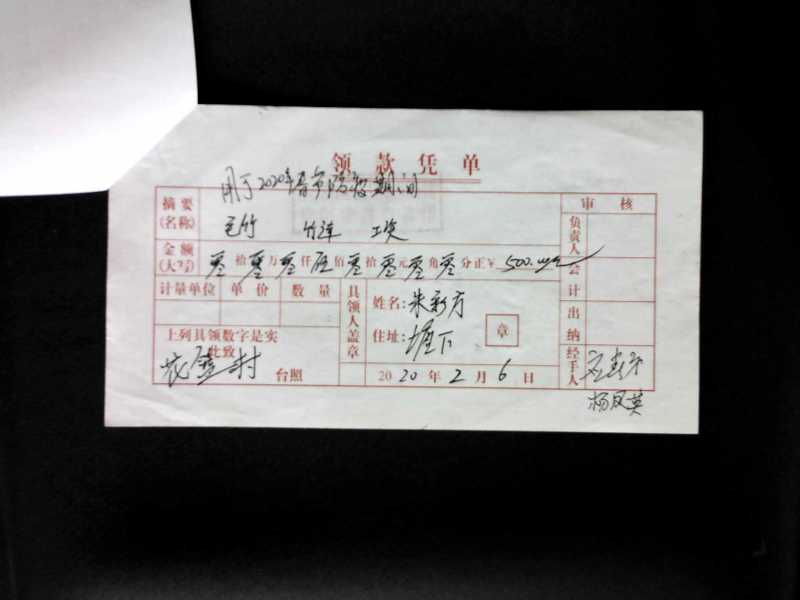 领款凭单
用于2020年春节防疫期间
摘要(名称) 毛竹 竹洋 工资
审核
金额(大写) 零拾零万零仟伍佰零拾零元零角零分正¥ 500.00元
负责人
会计
计量单位 单价 数量
具领人盖章
姓名:朱新方
住址:堰下
章
出纳
上列具领数字是实
此致
村 台照
2020年2月6日
经手人
杨凤英